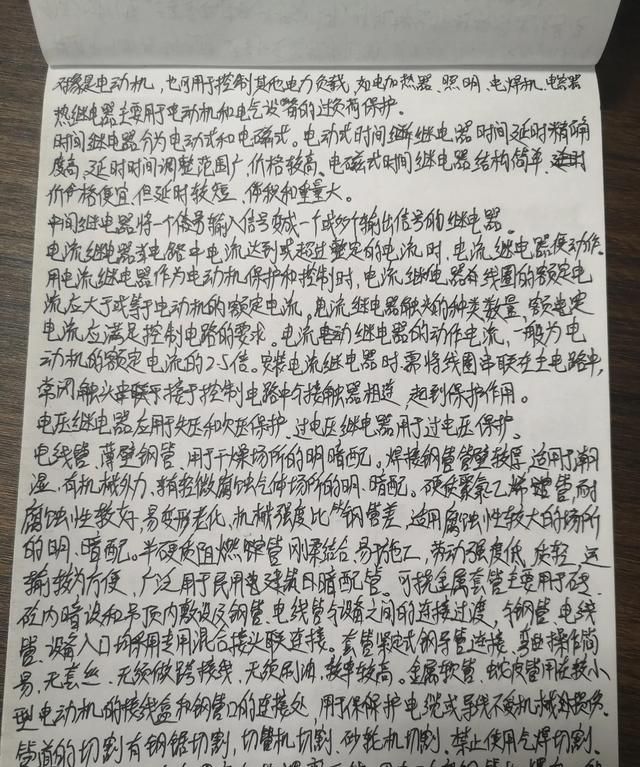 对象是电动机，也可用于控制其他电力负载，如电加热器、照明、电焊机、电容器
热继电器主要用于电动机和电气设备的过负荷保护。
时间继电器分为电动式和电磁式。电动式时间继电器时间延时精确
度高、延时时间调整范围广，价格较高。电磁式时间继电器结构简单，
价格便宜，但延时较短，体积和重量大。
中间继电器将一个信号输入信号变成一个或多个输出信号的继电器。
电流继电器当电路中电流达到或超过整定的电流时，电流继电器便动作。
用电流继电器作为电动机保护和控制时，电流继电器线圈的额定电
流应大于或等于电动机的额定电流。电流继电器触头的种类数量，额定
电流应满足控制电路的要求。电流继电器的动作电流，一般为电
动机的额定电流的2.5倍。安装电流继电器时，需将线圈串联在主电路中，
常闭触头串联于接于控制电路中与接触器相连，起到保护作用。
电压继电器应用于失压和欠压保护、过电压继电器用于过电压保护。
电线管、薄壁钢管，用于干燥场所的明、暗配。焊接钢管管壁较厚，适用于潮
湿、有机械外力、有轻微腐蚀气体场所的明、暗配。硬质聚氯乙烯管耐
腐蚀性较好，易变形老化，机械强度比钢管差，适用腐蚀性较大的场所
的明、暗配。半硬质阻燃管刚柔结合，易于施工，劳动强度低，质轻，运
输较为方便，广泛用于民用建筑暗配管。可挠金属套管主要用于砼
砼内暗设和吊顶内敷设及钢管、电线管与设备之间的连接过渡，与钢管、电线
管、设备入口均采用专用混合接头联连接。套管紧定式钢导管连接、弯曲操作简
易，无套丝、无须做跨接线，无须刷油，效率较高。金属软管、蛇皮管用在较小
型电动机的接线盒和钢管口的连接处，用于保护电缆或导线不受机械损伤。
管道的切割有钢锯切割，切管机切割、砂轮机切割。禁止使用气焊切割。